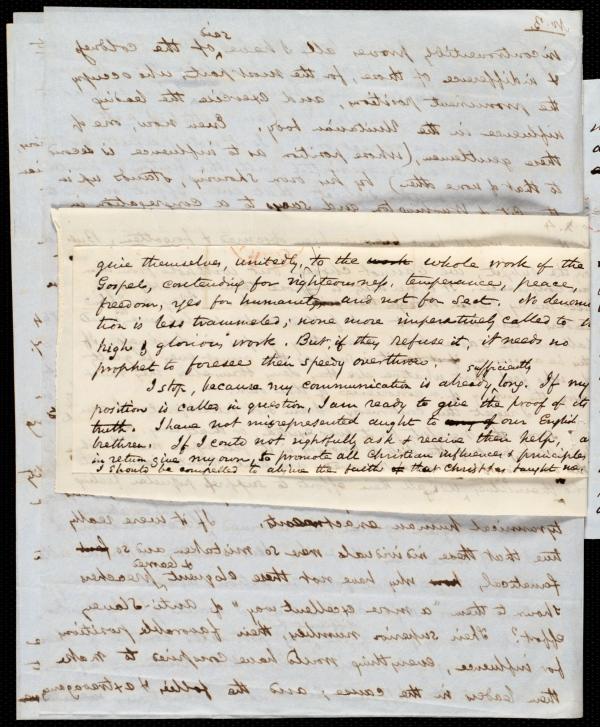 No. 3
incontrovertibly proves all I have said of the coldness
& indifference of those for the most part, who occupy
the prominent position, and exercise the leading
influence in the Unitarian body. Even now, one of
these gentlemen, (whose position as to influence is second
to that of none other) by his own showing, stands up in
and says to a congregation
give themselves, unitedly, to the work whole work of the
Gospels, contending for righteousness, temperance, peace,
freedom, yes for humanity and not for Sect. No denomina
tion is less trammeled; none more imperatively called to
high & glorious work. But if they refuse it, it needs no
prophet to foresee their speedy overthrow.
I stop, because my communication is already sufficiently long. If my
position is called in question, I am ready to give the proof of its
truth. I have not misrepresented aught to any of our English
brethren. If I could not rightfully ask & receive their help, "a
in return give my own, to promote all Christian influences & principles
I should be compelled to abjure the faith that Christ has taught me.
tyrannical human enactments. If it were really
true that these individuals were so mistaken and so
fanatical, why have not these eloquent & learned preachers
shown to them "a more excellent way" of Anti-Slavery
effort? Their superior number, their favorable position
for influence, everything would have conspired to make
them leaders in the cause; and the follies & extravagance